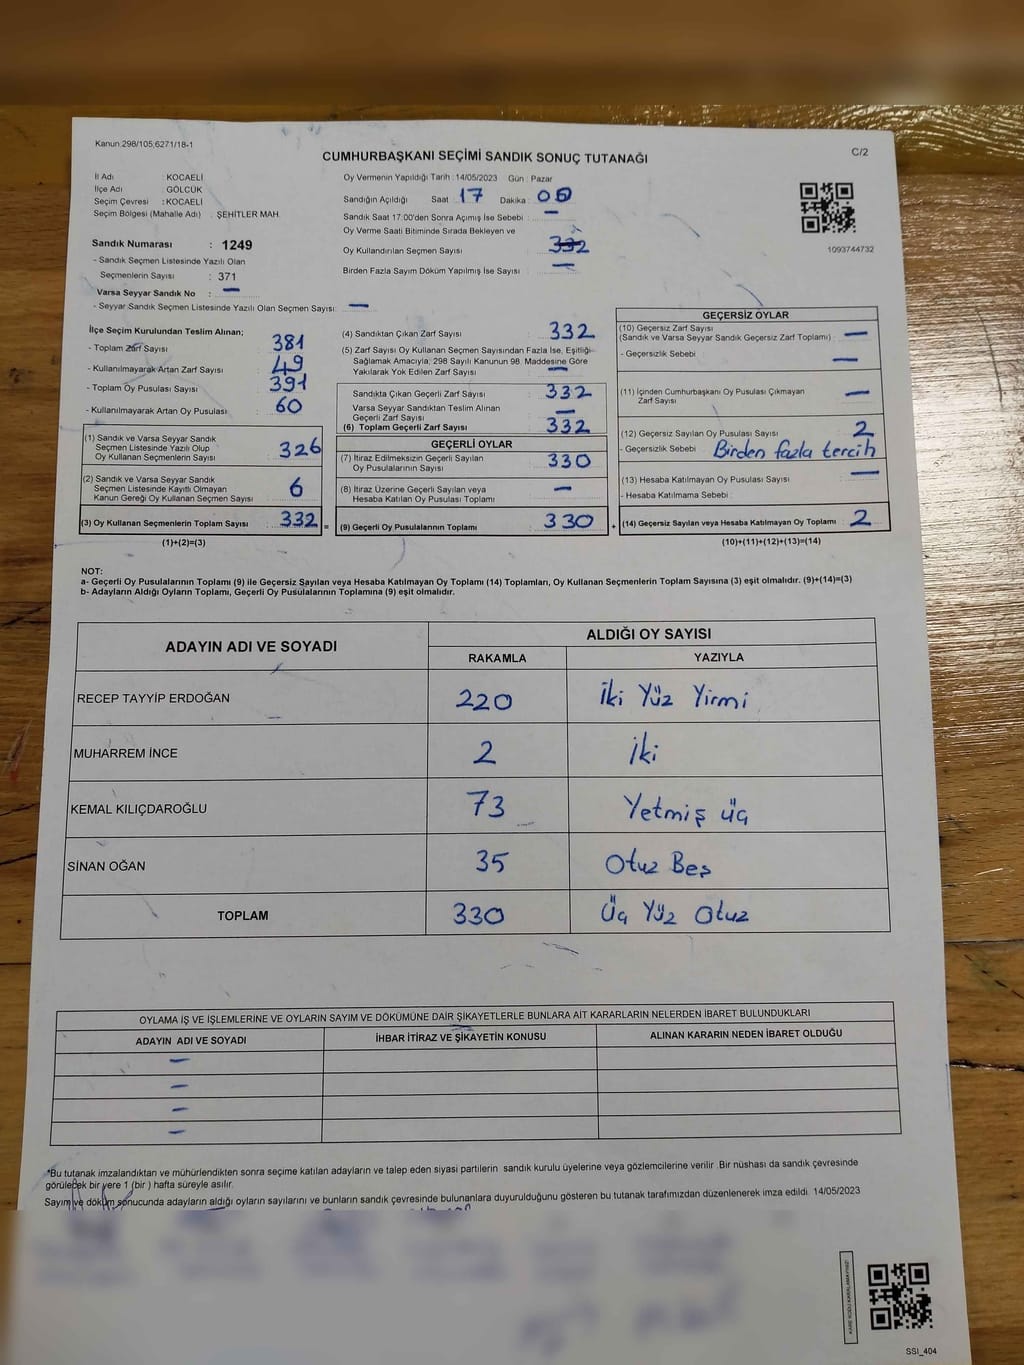 Kanun 298/105;6271/18-1
C/2
CUMHURBAŞKANI SEÇİMİ SANDIK SONUÇ TUTANAĞI
İl Adı : KOCAELİ
İlçe Adı : GÖLCÜK
Seçim Çevresi : KOCAELİ
Seçim Bölgesi (Mahalle Adı) : ŞEHİTLER MAH.
Sandık Numarası : 1249
- Sandık Seçmen Listesinde Yazılı Olan
Seçmenlerin Sayısı : 371
Varsa Seyyar Sandık No : —
- Seyyar Sandık Seçmen Listesinde Yazılı Olan Seçmen Sayısı: —
Oy Vermenin Yapıldığı Tarih : 14/05/2023 Gün : Pazar
Sandığın Açıldığı Saat : 17 Dakika : 00
Sandık Saat 17:00'den Sonra Açımış İse Sebebi : —
Oy Verme Saati Bitiminde Sırada Bekleyen ve
Oy Kullandırılan Seçmen Sayısı 332
Birden Fazla Sayım Döküm Yapılmış İse Sayısı : —
1093744732
İlçe Seçim Kurulundan Teslim Alınan;
- Toplam Zarf Sayısı : 381
- Kullanılmayarak Artan Zarf Sayısı : 49
- Toplam Oy Pusulası Sayısı : 391
- Kullanılmayarak Artan Oy Pusulası : 60
(1) Sandık ve Varsa Seyyar Sandık
Seçmen Listesinde Yazılı Olup
Oy Kullanan Seçmenlerin Sayısı : 326
(2) Sandık ve Varsa Seyyar Sandık
Seçmen Listesinde Kayıtlı Olmayan
Kanun Gereği Oy Kullanan Seçmen Sayısı : 6
(3) Oy Kullanan Seçmenlerin Toplam Sayısı : 332 =
(1)+(2)=(3)
(4) Sandıktan Çıkan Zarf Sayısı : 332
(5) Zarf Sayısı Oy Kullanan Seçmen Sayısından Fazla İse, Eşitliği
Sağlamak Amacıyla; 298 Sayılı Kanunun 98. Maddesine Göre
Yakılarak Yok Edilen Zarf Sayısı : —
Sandıkta Çıkan Geçerli Zarf Sayısı : 332
Varsa Seyyar Sandıktan Teslim Alınan
Geçerli Zarf Sayısı : —
(6) Toplam Geçerli Zarf Sayısı : 332
GEÇERLİ OYLAR
(7) İtiraz Edilmeksizin Geçerli Sayılan
Oy Pusulalarının Sayısı : 330
(8) İtiraz Üzerine Geçerli Sayılan veya
Hesaba Katılan Oy Pusulası Toplamı : —
(9) Geçerli Oy Pusulalarının Toplamı : 330 +
GEÇERSİZ OYLAR
(10) Geçersiz Zarf Sayısı
(Sandık ve Varsa Seyyar Sandık Geçersiz Zarf Toplamı) : —
- Geçersizlik Sebebi : —
(11) İçinden Cumhurbaşkanı Oy Pusulası Çıkmayan
Zarf Sayısı : —
(12) Geçersiz Sayılan Oy Pusulası Sayısı : 2
- Geçersizlik Sebebi : Birden fazla tercih
(13) Hesaba Katılmayan Oy Pusulası Sayısı : —
- Hesaba Katılmama Sebebi :
(14) Geçersiz Sayılan veya Hesaba Katılmayan Oy Toplamı : 2
(10)+(11)+(12)+(13)=(14)
NOT:
a- Geçerli Oy Pusulalarının Toplamı (9) ile Geçersiz Sayılan veya Hesaba Katılmayan Oy Toplamı (14) Toplamları, Oy Kullanan Seçmenlerin Toplam Sayısına (3) eşit olmalıdır. (9)+(14)=(3)
b- Adayların Aldığı Oyların Toplamı, Geçerli Oy Pusulalarının Toplamına (9) eşit olmalıdır.
ADAYIN ADI VE SOYADI ALDIĞI OY SAYISI
RAKAMLA YAZIYLA
RECEP TAYYİP ERDOĞAN 220 İki Yüz Yirmi
MUHARREM İNCE 2 İki
KEMAL KILIÇDAROĞLU 73 Yetmiş üç
SİNAN OĞAN 35 Otuz Beş
TOPLAM 330 Üç Yüz Otuz
OYLAMA İŞ VE İŞLEMLERİNE VE OYLARIN SAYIM VE DÖKÜMÜNE DAİR ŞİKAYETLERLE BUNLARA AİT KARARLARIN NELERDEN İBARET BULUNDUKLARI
ADAYIN ADI VE SOYADI İHBAR İTİRAZ VE ŞİKAYETİN KONUSU ALINAN KARARIN NEDEN İBARET OLDUĞU
—
—
—
—
*Bu tutanak imzalandıktan ve mühürlendikten sonra seçime katılan adayların ve talep eden siyasi partilerin sandık kurulu üyelerine veya gözlemcilerine verilir .Bir nüshası da sandık çevresinde
görülecek bir yere 1 (bir ) hafta süreyle asılır.
Sayım ve döküm sonucunda adayların aldığı oyların sayılarını ve bunların sandık çevresinde bulunanlara duyurulduğunu gösteren bu tutanak tarafımızdan düzenlenerek imza edildi. 14/05/2023
SSI_404